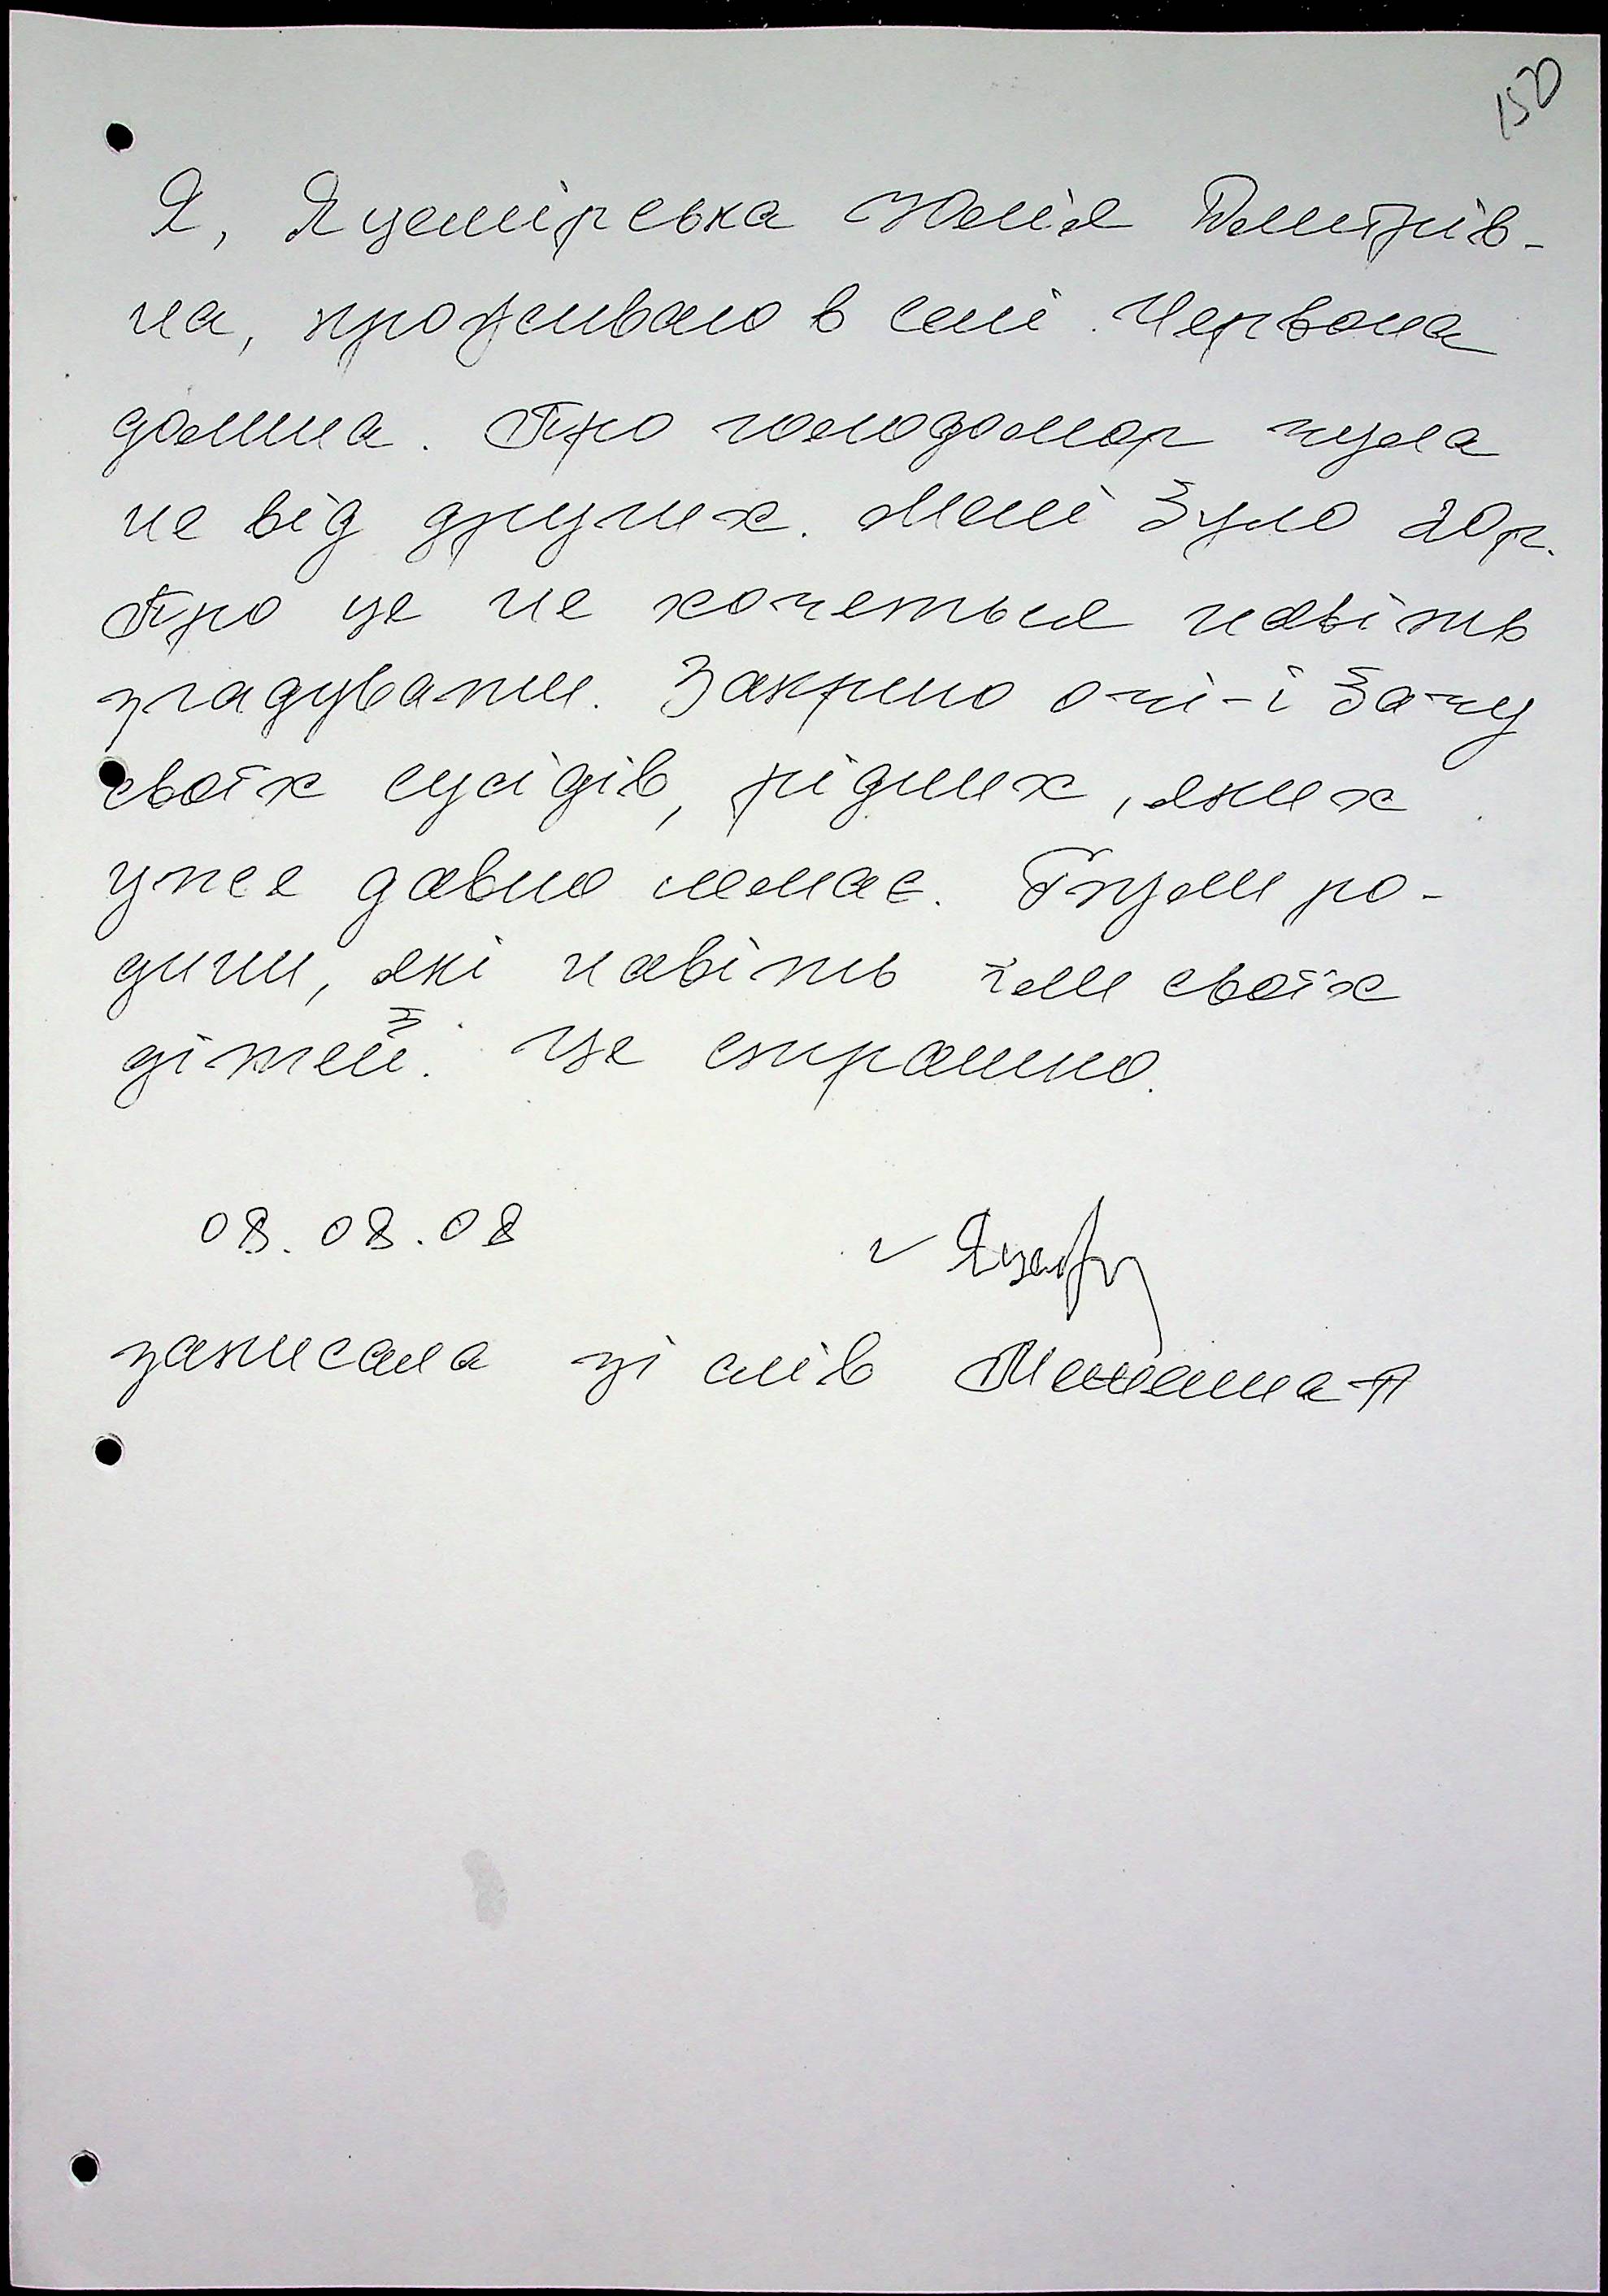 150
Я, Яцемірська Юлія Дмитрів-
на, проживаю в селі Червона
долина. Про голодомор чула
не від других. Мені було 20 р.
Про це не хочеться навіть
згадувати. Закрию очі - і бачу
своїх сусідів, рідних, яких
уже давно немає. Були ро-
дини, які навіть їли своїх
дітей. Це страшно.
08.08.08
записала зі слів